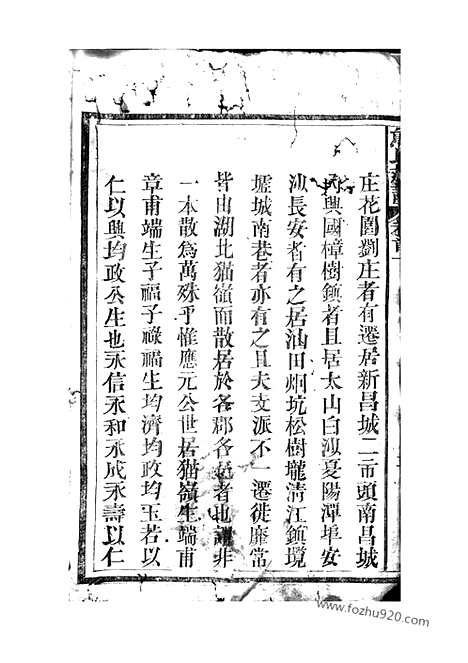 庄花園劉庄者有遷居新昌城二市頭南昌城
興國樟樹鎮者且居太山白沙夏陽潭埠安
汕長安者有之居油田烟坑松樹壠清江鎮境
墟城南巷者亦有之且夫支派不一遷徙靡常
皆由湖北猫嶺而散居於各郡各邑者也謂非
一本散為萬殊乎惟應元公世居猫嶺生端甫
章甫端生子福子祿福生均濟均政均玉若以
仁以興均政公生也永信永和永成永壽以仁
www.fozhu920.com